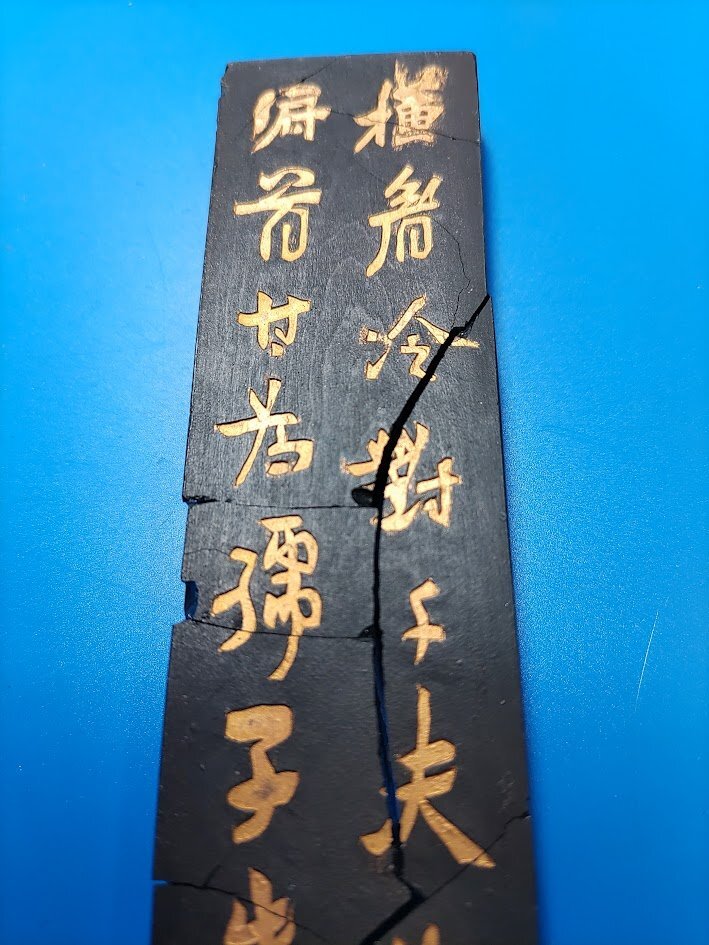 橫眉冷對千夫
俯首甘為孺子